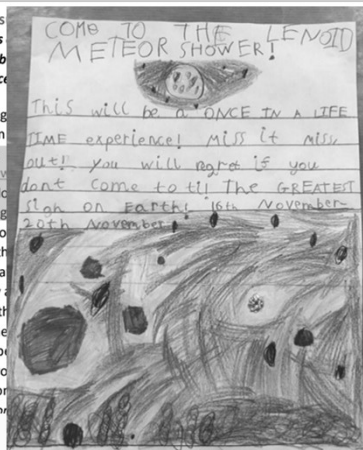 COME TO THE LENOID
METEOR SHOWER!
This will be a ONCE IN A LIFE
TIME experience! Miss it miss
out!! you will regret if you
dont come to ti! The GREATEST
sigh on Earth! 16th November-
20th November!